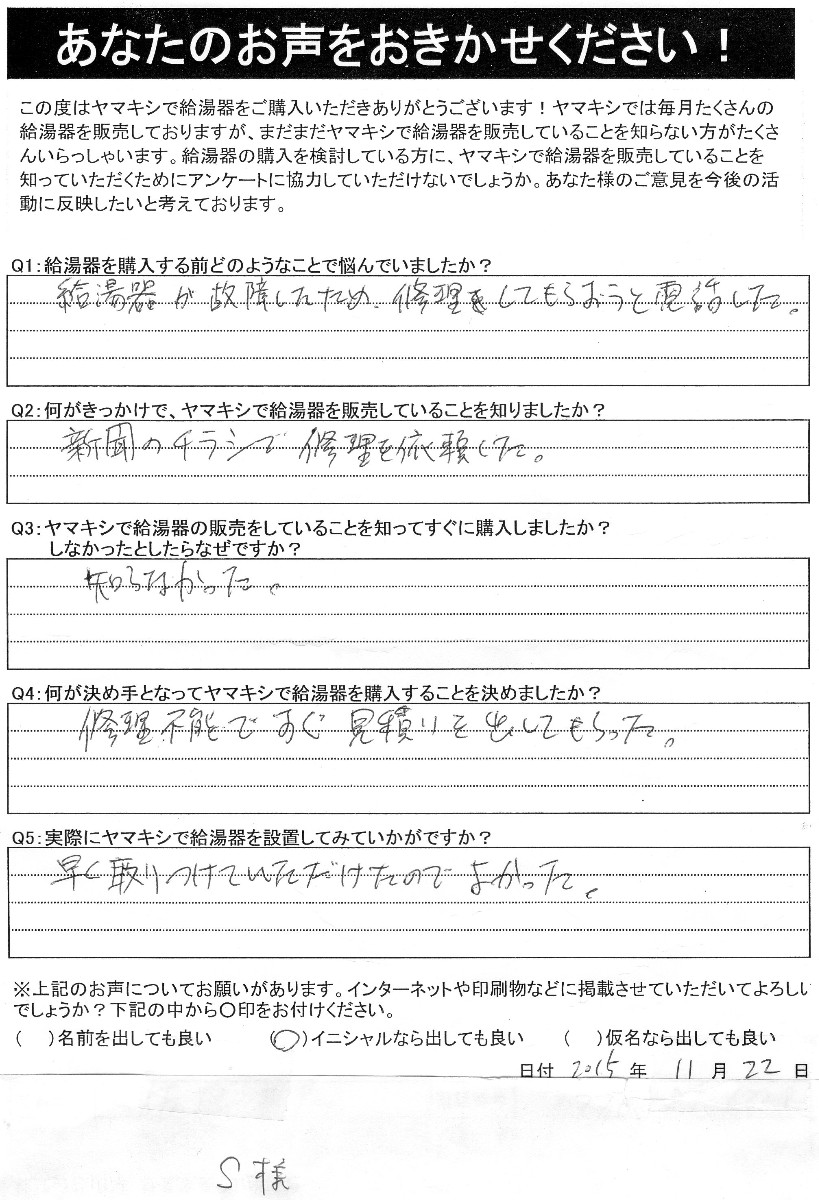 あなたのお声をおきかせください！
この度はヤマキシで給湯器をご購入いただきありがとうございます！ヤマキシでは毎月たくさんの
給湯器を販売しておりますが、まだまだヤマキシで給湯器を販売していることを知らない方がたくさ
んいらっしゃいます。給湯器の購入を検討している方に、ヤマキシで給湯器を販売していることを
知っていただくためにアンケートに協力していただけないでしょうか。あなた様のご意見を今後の活
動に反映したいと考えております。
Q1：給湯器を購入する前どのようなことで悩んでいましたか？
給湯器が故障したため、修理をしてもらおうと電話した。
Q2：何がきっかけで、ヤマキシで給湯器を販売していることを知りましたか？
新聞のチラシで修理を依頼した。
Q3：ヤマキシで給湯器の販売をしていることを知ってすぐに購入しましたか？
しなかったとしたらなぜですか？
知らなかった。
Q4：何が決め手となってヤマキシで給湯器を購入することを決めましたか？
修理不能ですぐ見積りを出してもらった。
Q5：実際にヤマキシで給湯器を設置してみていかがですか？
早く取りつけていただけたのでよかった。
※上記のお声についてお願いがあります。インターネットや印刷物などに掲載させていただいてよろしい
でしょうか？下記の中から〇印をお付けください。
（　）名前を出しても良い　（〇）イニシャルなら出しても良い　（　）仮名なら出しても良い
日付 2015 年 11 月 22 日
S様